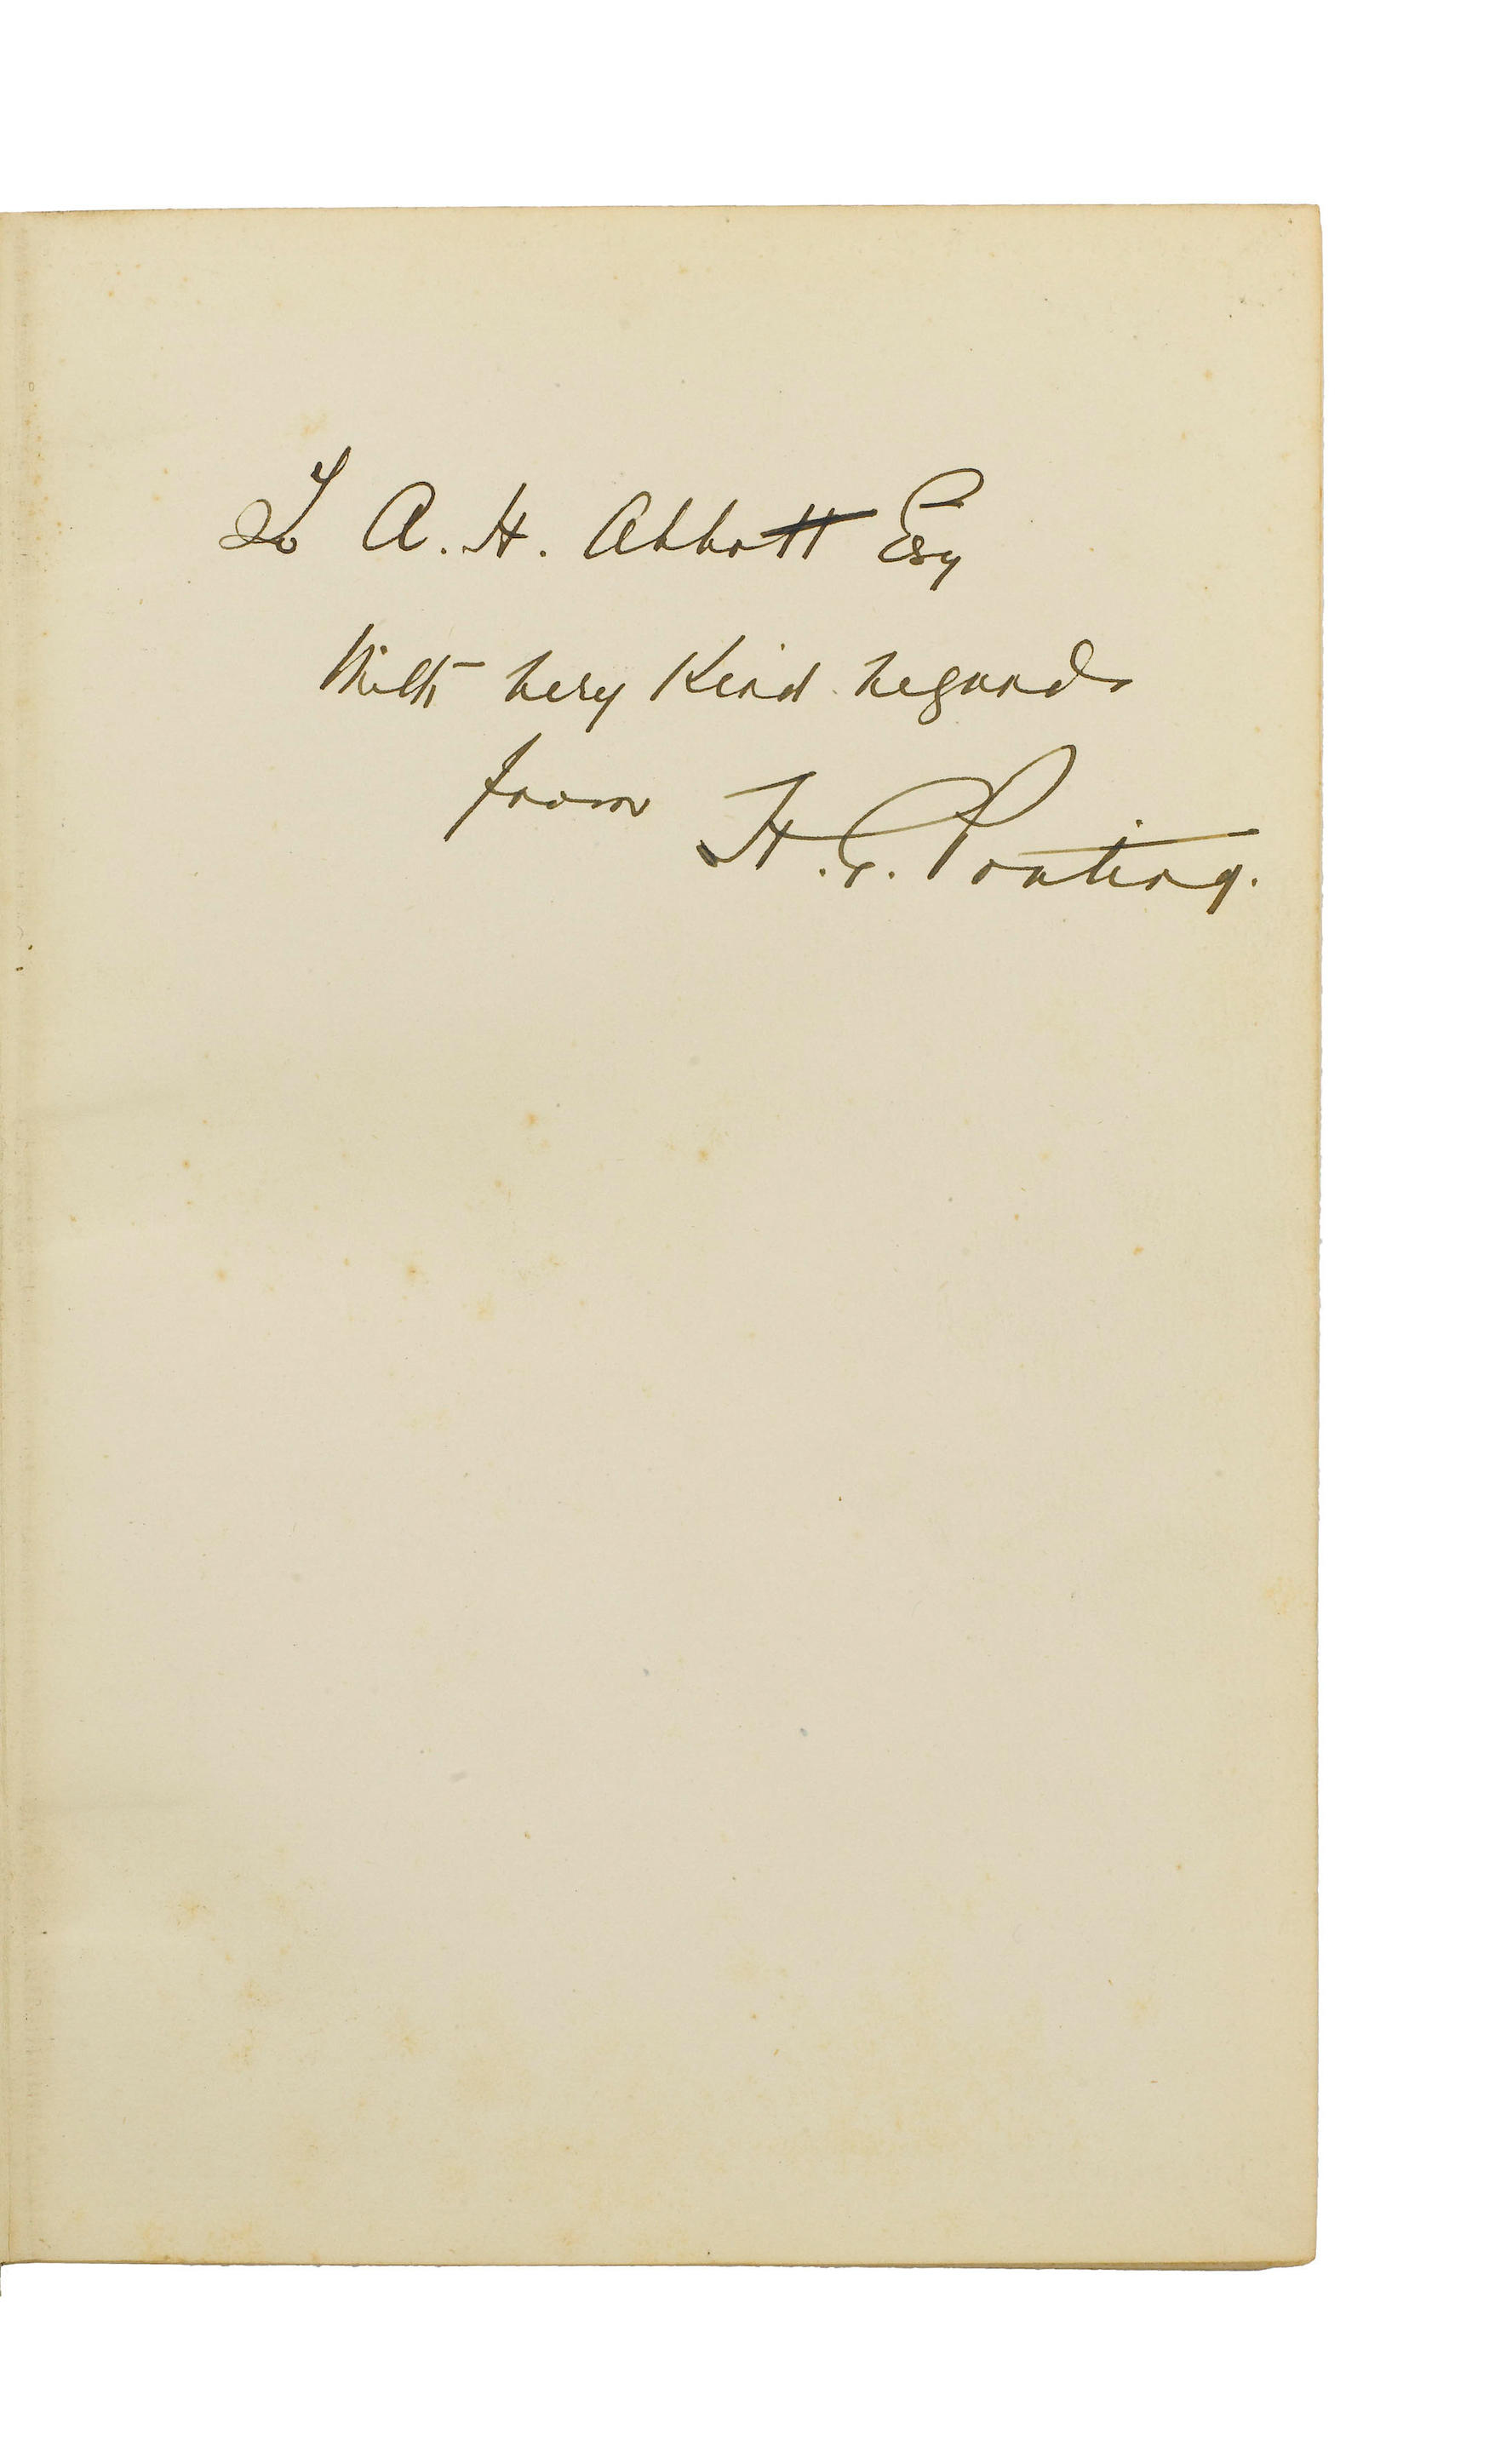 To A. H. Abbott Esq
With very Kind regards
from H. G. Ponting.